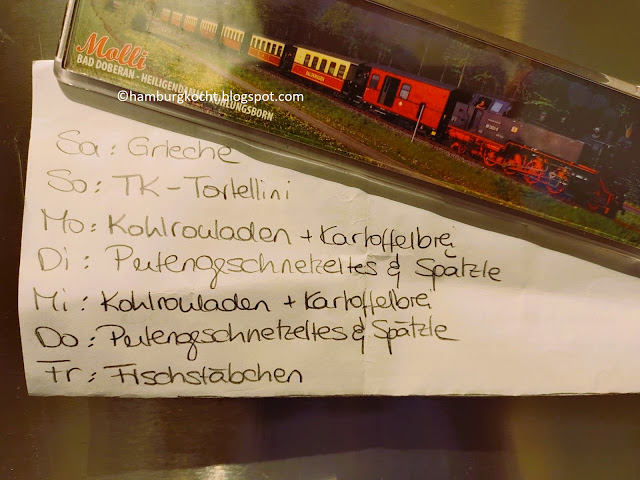 Molli
BAD DOBERAN - HEILIGENDAMM - KÜHLUNGSBORN
©hamburgkocht.blogspot.com
Sa: Grieche
So: TK-Tortellini
Mo: Kohlrouladen + Kartoffelbrei
Di: Putengeschnetzeltes & Spätzle
Mi: Kohlrouladen + Kartoffelbrei
Do: Putengeschnetzeltes & Spätzle
Fr: Fischstäbchen